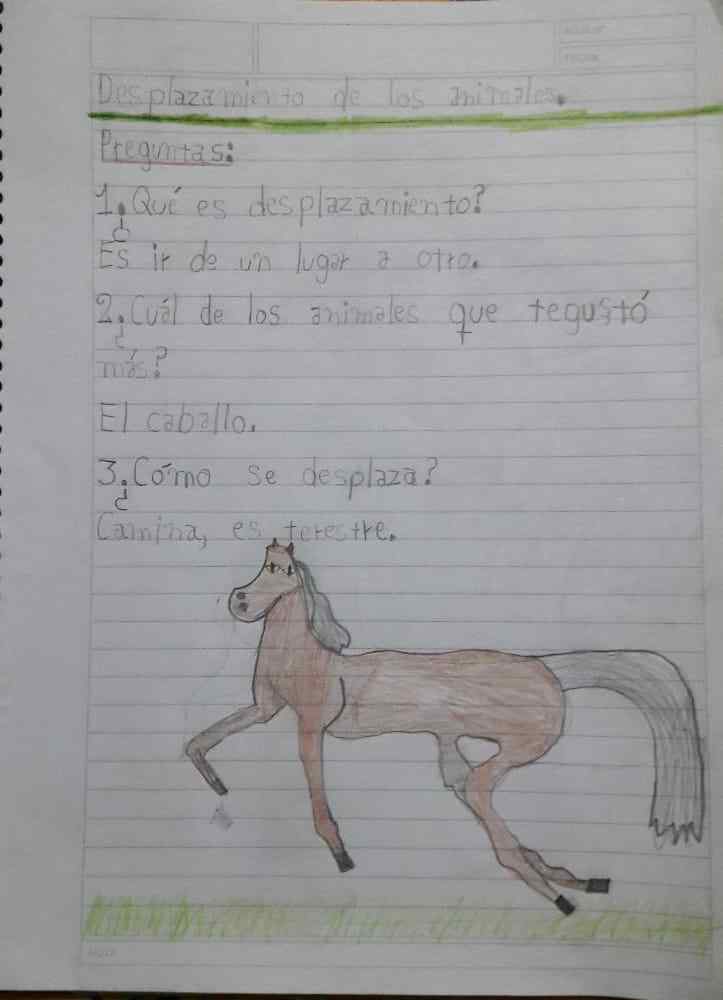 Desplazamiento de los animales.
Preguntas:
1. ¿Qué es desplazamiento?
Es ir de un lugar a otro.
2. ¿Cuál de los animales que tegustó
más?
El caballo.
3. ¿Cómo se desplaza?
Camina, es terestre.